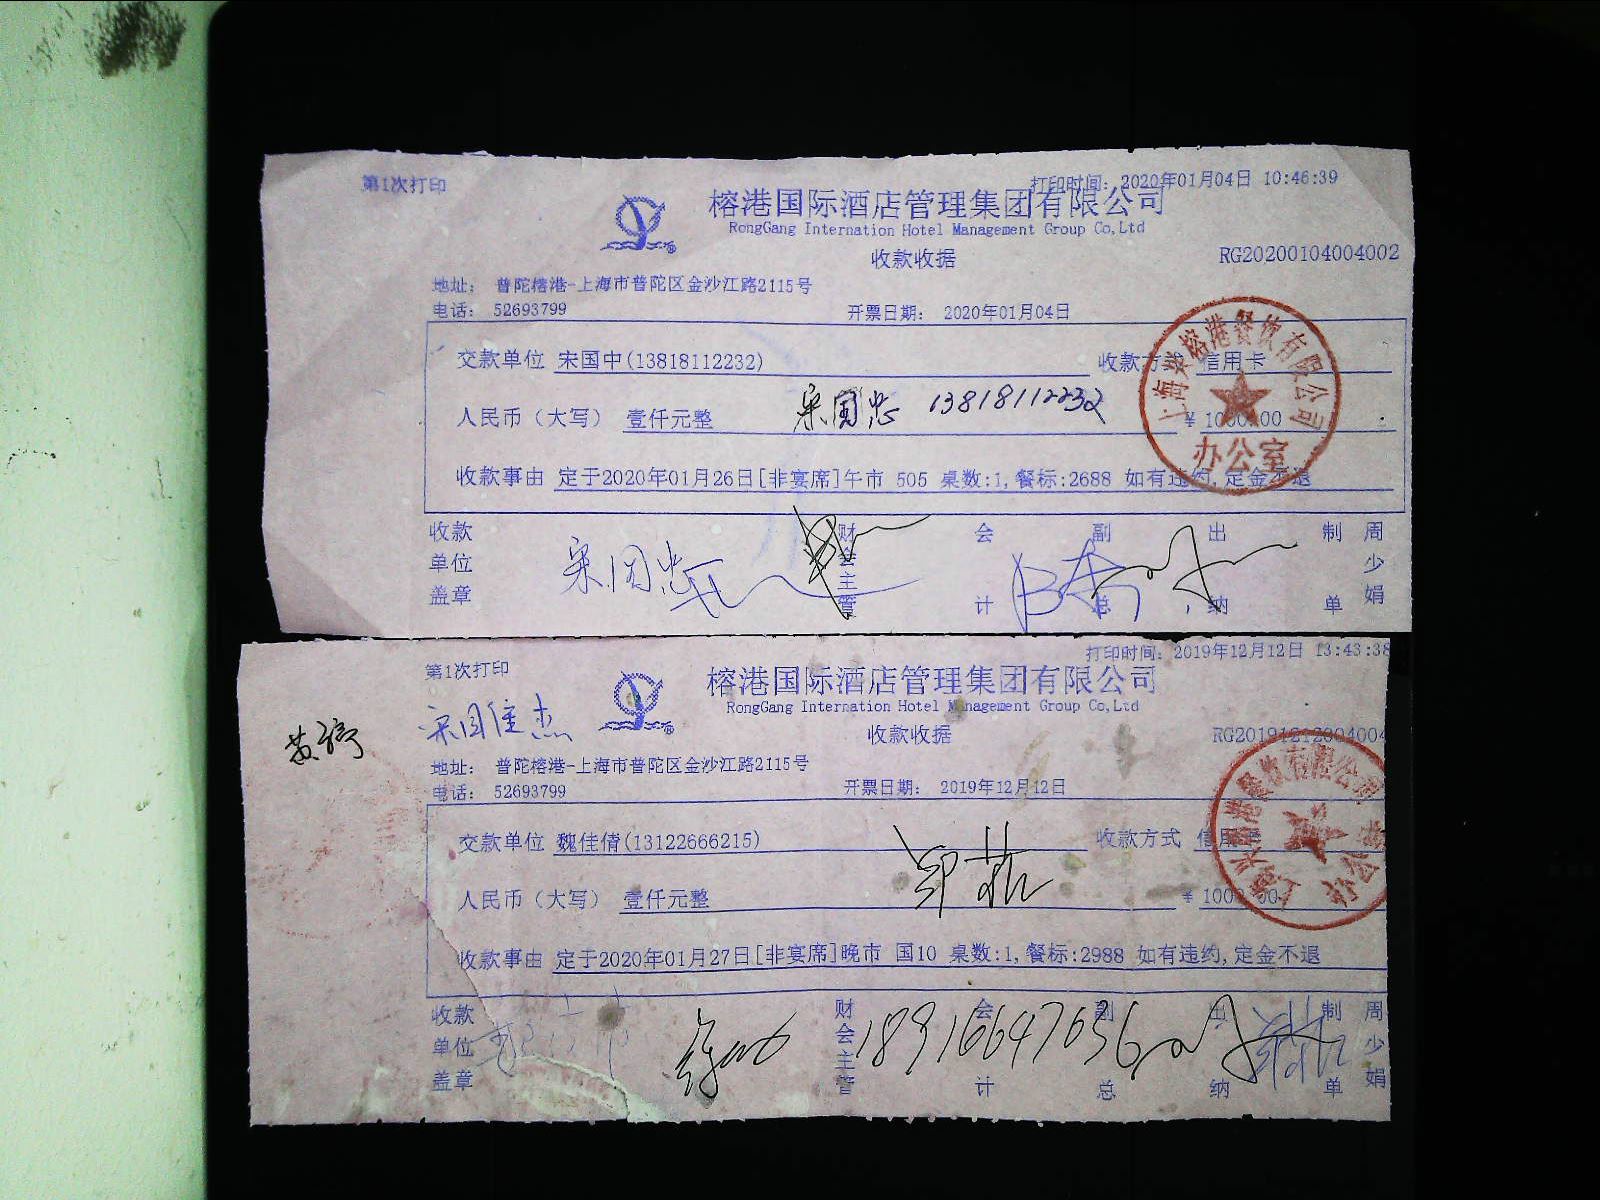 第1次打印
打印时间：2020年01月04日 10:46:39
榕港国际酒店管理集团有限公司
RongGang Internation Hotel Management Group Co,Ltd
收款收据
RG20200104004002
地址： 普陀榕港-上海市普陀区金沙江路2115号
电话： 52693799
开票日期： 2020年01月04日
交款单位 宋国中(13818112232)
收款方式 信用卡
人民币（大写） 壹仟元整
宋国忠 13818112232
¥ 1000.00
收款事由 定于2020年01月26日[非宴席]午市 505 桌数:1,餐标:2688 如有违约,定金不退
榕港餐饮有限公司
办公室
收款单位盖章
宋国忠
财会主管
会计
副总
出纳
制单
周少娟
第1次打印
打印时间：2019年12月12日 13:43:38
榕港国际酒店管理集团有限公司
RongGang Internation Hotel Management Group Co,Ltd
收款收据
地址： 普陀榕港-上海市普陀区金沙江路2115号
电话： 52693799
开票日期： 2019年12月12日
交款单位 魏佳倩(13122666215)
收款方式 信用卡
人民币（大写） 壹仟元整
¥ 1000.00
收款事由 定于2020年01月27日[非宴席]晚市 国10 桌数:1,餐标:2988 如有违约,定金不退
榕港餐饮有限公司
办公室
收款单位盖章
财会主管
18916647636
会计
副总
出纳
制单
周少娟